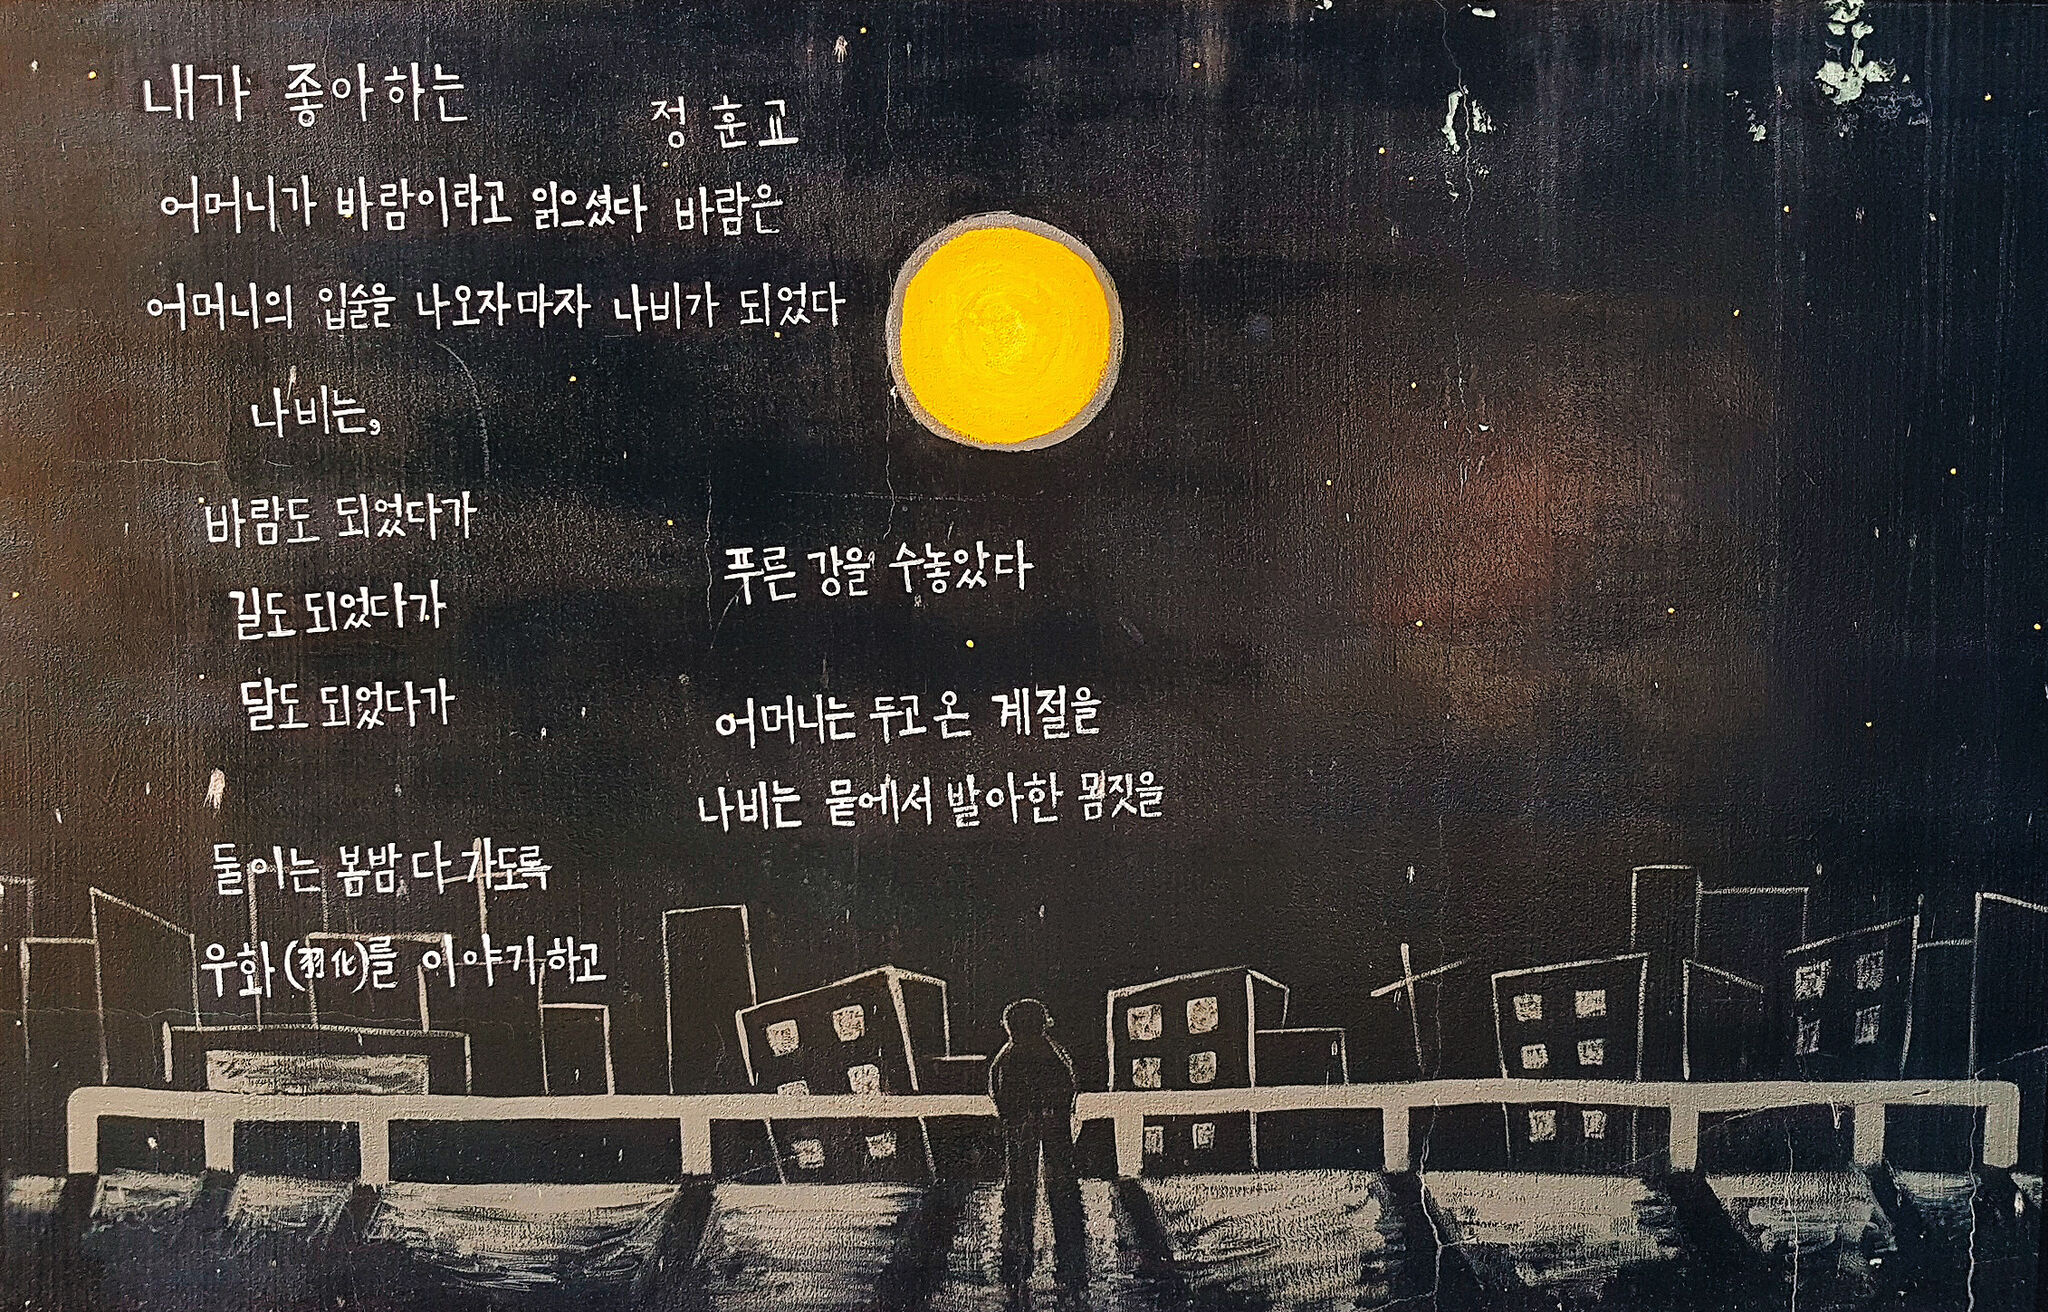 내가 좋아하는
정훈교
어머니가 바람이라고 읽으셨다 바람은
어머니의 입술을 나오자마자 나비가 되었다
나비는,
바람도 되었다가
길도 되었다가
달도 되었다가
푸른 강을 수놓았다
어머니는 두고 온 계절을
나비는 뭍에서 발아한 몸짓을
둘이는 봄밤 다 가도록
우화(羽化)를 이야기하고